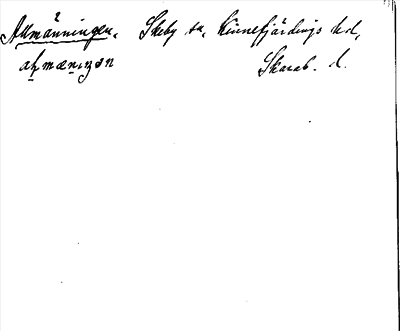 Allmänningen. Skeby sn, Kinnefjärdings hd,
Skarab. l.